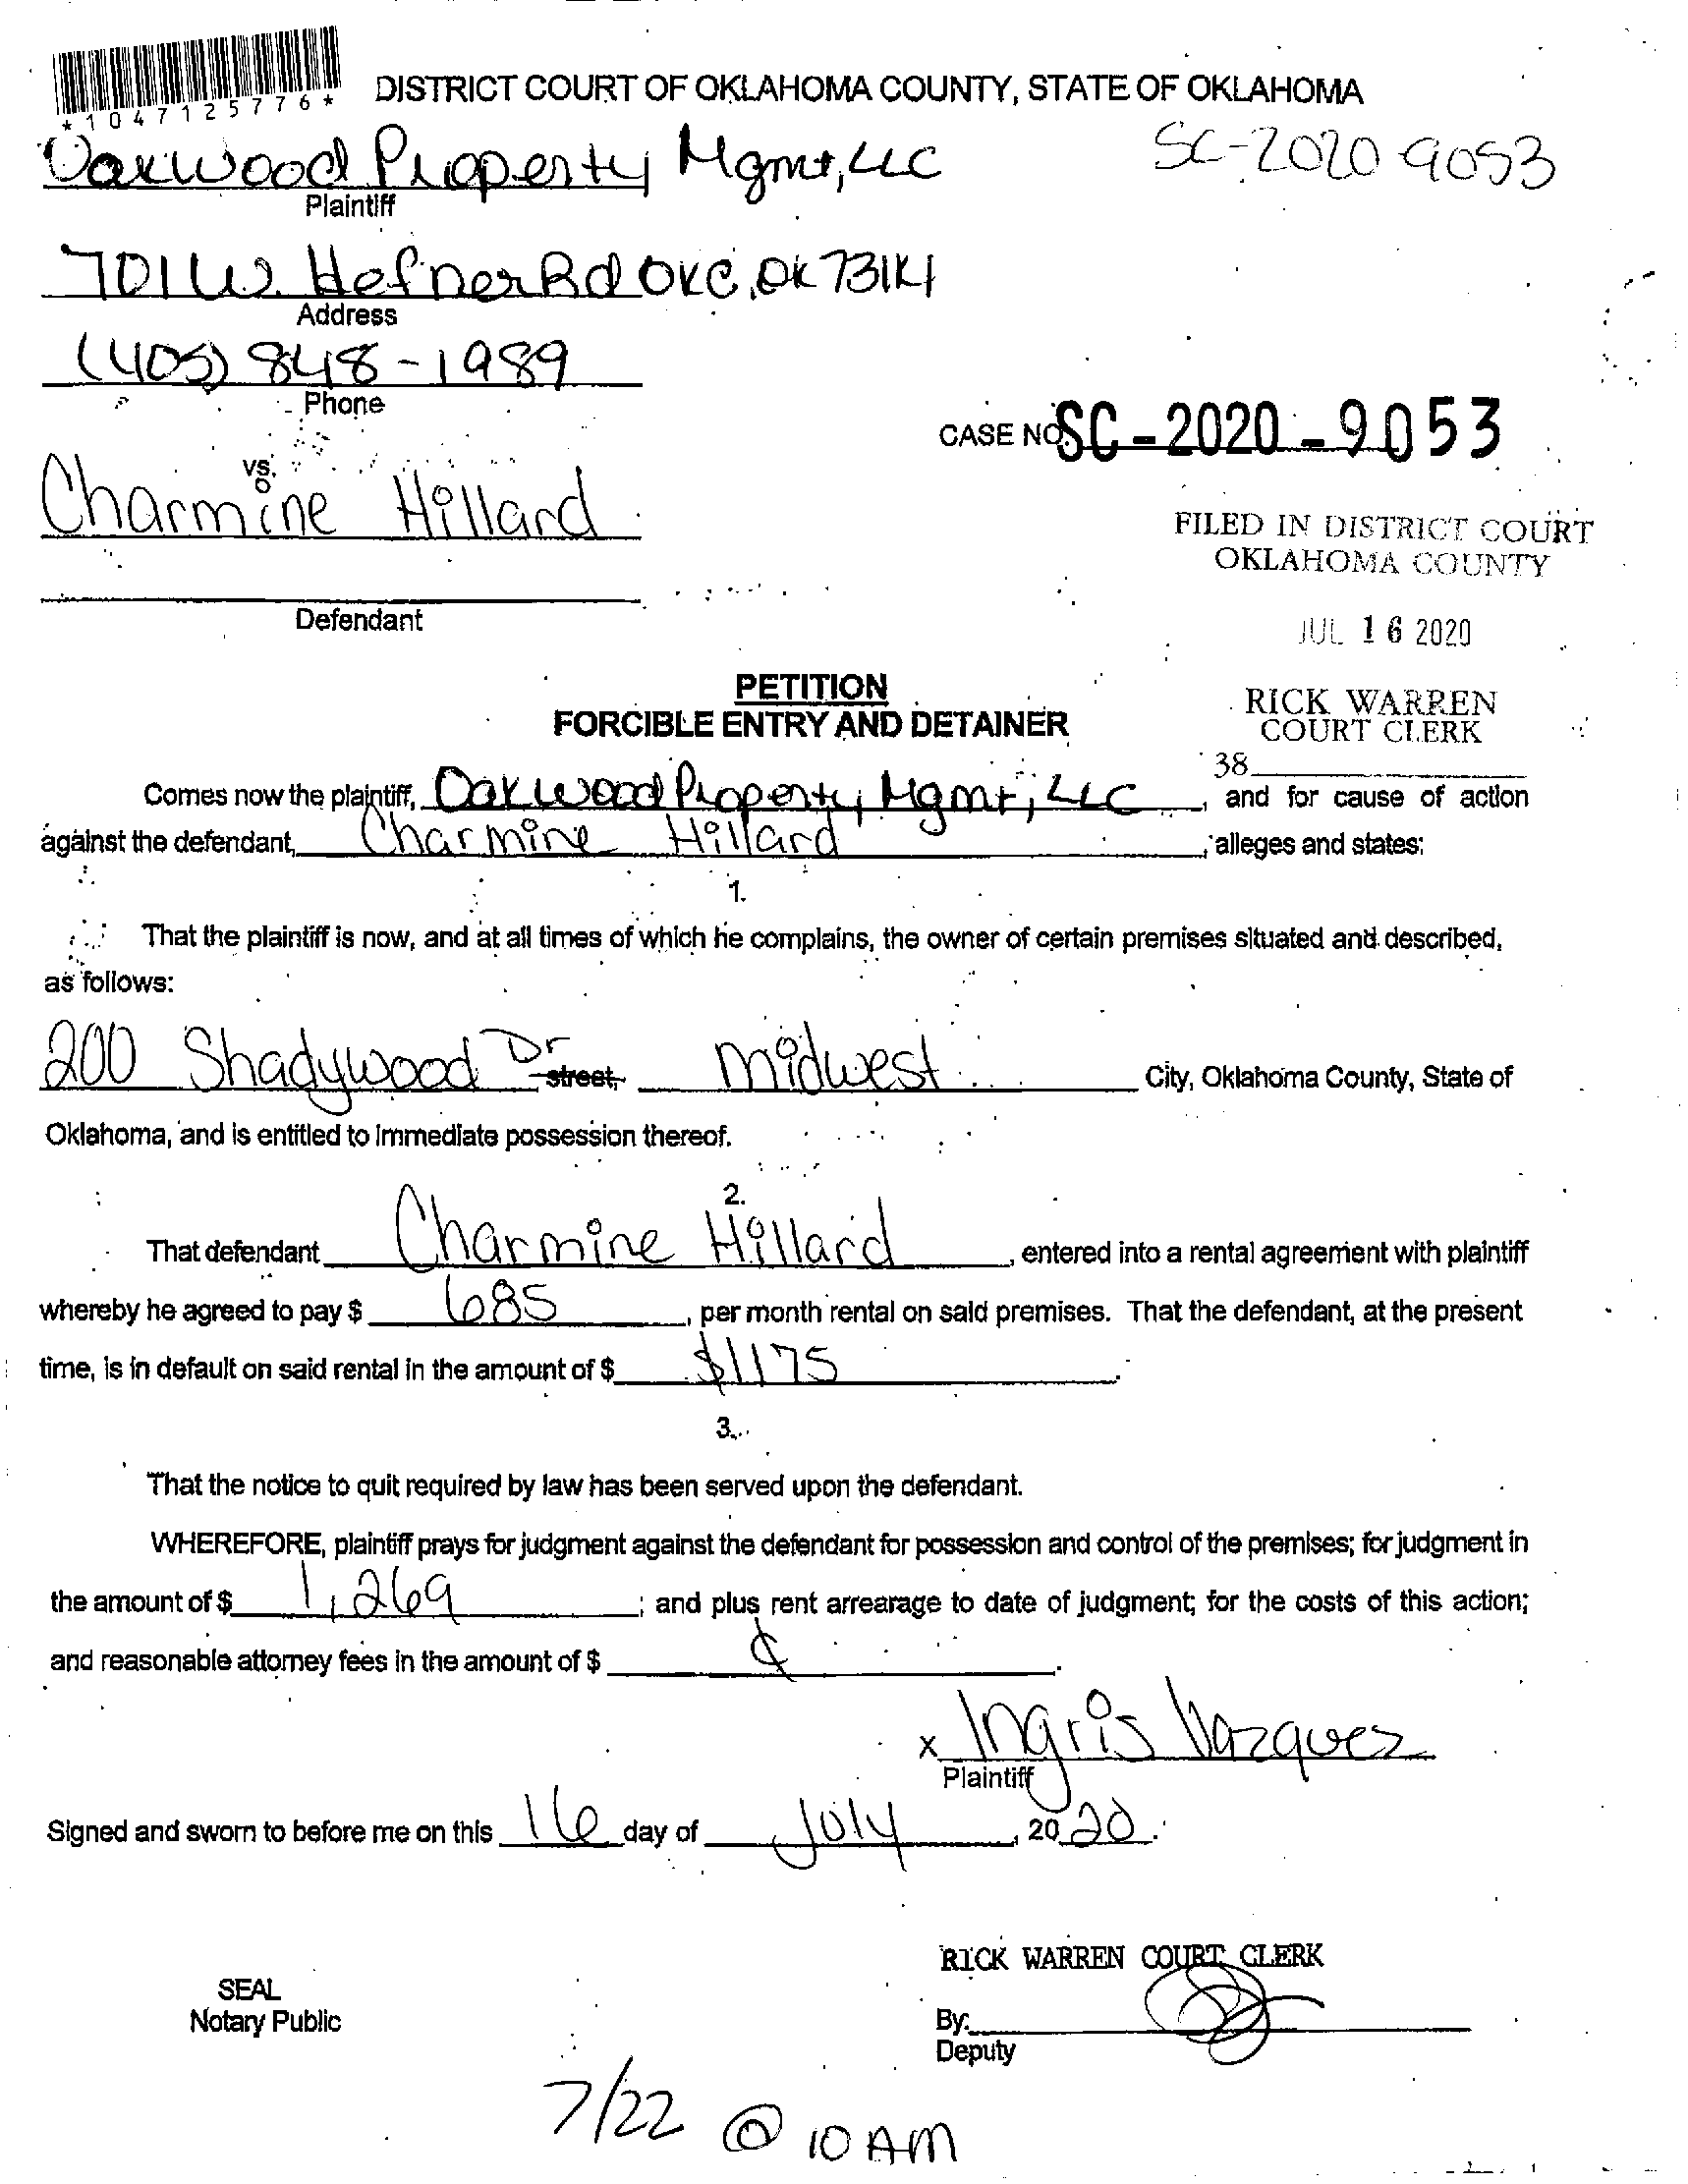 *1047125776*
DISTRICT COURT OF OKLAHOMA COUNTY, STATE OF OKLAHOMA
Oakwood Property Mgmt, LLC
SC-2020-9053
Plaintiff
701 W. Hefner Rd OKC, OK 73114
Address
(405) 848-1989
Phone
CASE NO. SC-2020-9053
vs.
Charmine Hillard
FILED IN DISTRICT COURT
OKLAHOMA COUNTY
Defendant
JUL 16 2020
PETITION
FORCIBLE ENTRY AND DETAINER
RICK WARREN
COURT CLERK
38
Comes now the plaintiff, Oakwood Property Mgmt, LLC, and for cause of action
against the defendant, Charmine Hillard, alleges and states:
1.
That the plaintiff is now, and at all times of which he complains, the owner of certain premises situated and described,
as follows:
200 Shadywood Dr street, Midwest City, Oklahoma County, State of
Oklahoma, and is entitled to immediate possession thereof.
2.
That defendant Charmine Hillard, entered into a rental agreement with plaintiff
whereby he agreed to pay $ 685, per month rental on said premises. That the defendant, at the present
time, is in default on said rental in the amount of $ $1175.
3.
That the notice to quit required by law has been served upon the defendant.
WHEREFORE, plaintiff prays for judgment against the defendant for possession and control of the premises; for judgment in
the amount of $ 1,269; and plus rent arrearage to date of judgment; for the costs of this action;
and reasonable attorney fees in the amount of $
x Ingris Vazquez
Plaintiff
Signed and sworn to before me on this 16 day of July, 2020.
RICK WARREN COURT CLERK
SEAL
Notary Public
By:
Deputy
7/22 @ 10 AM